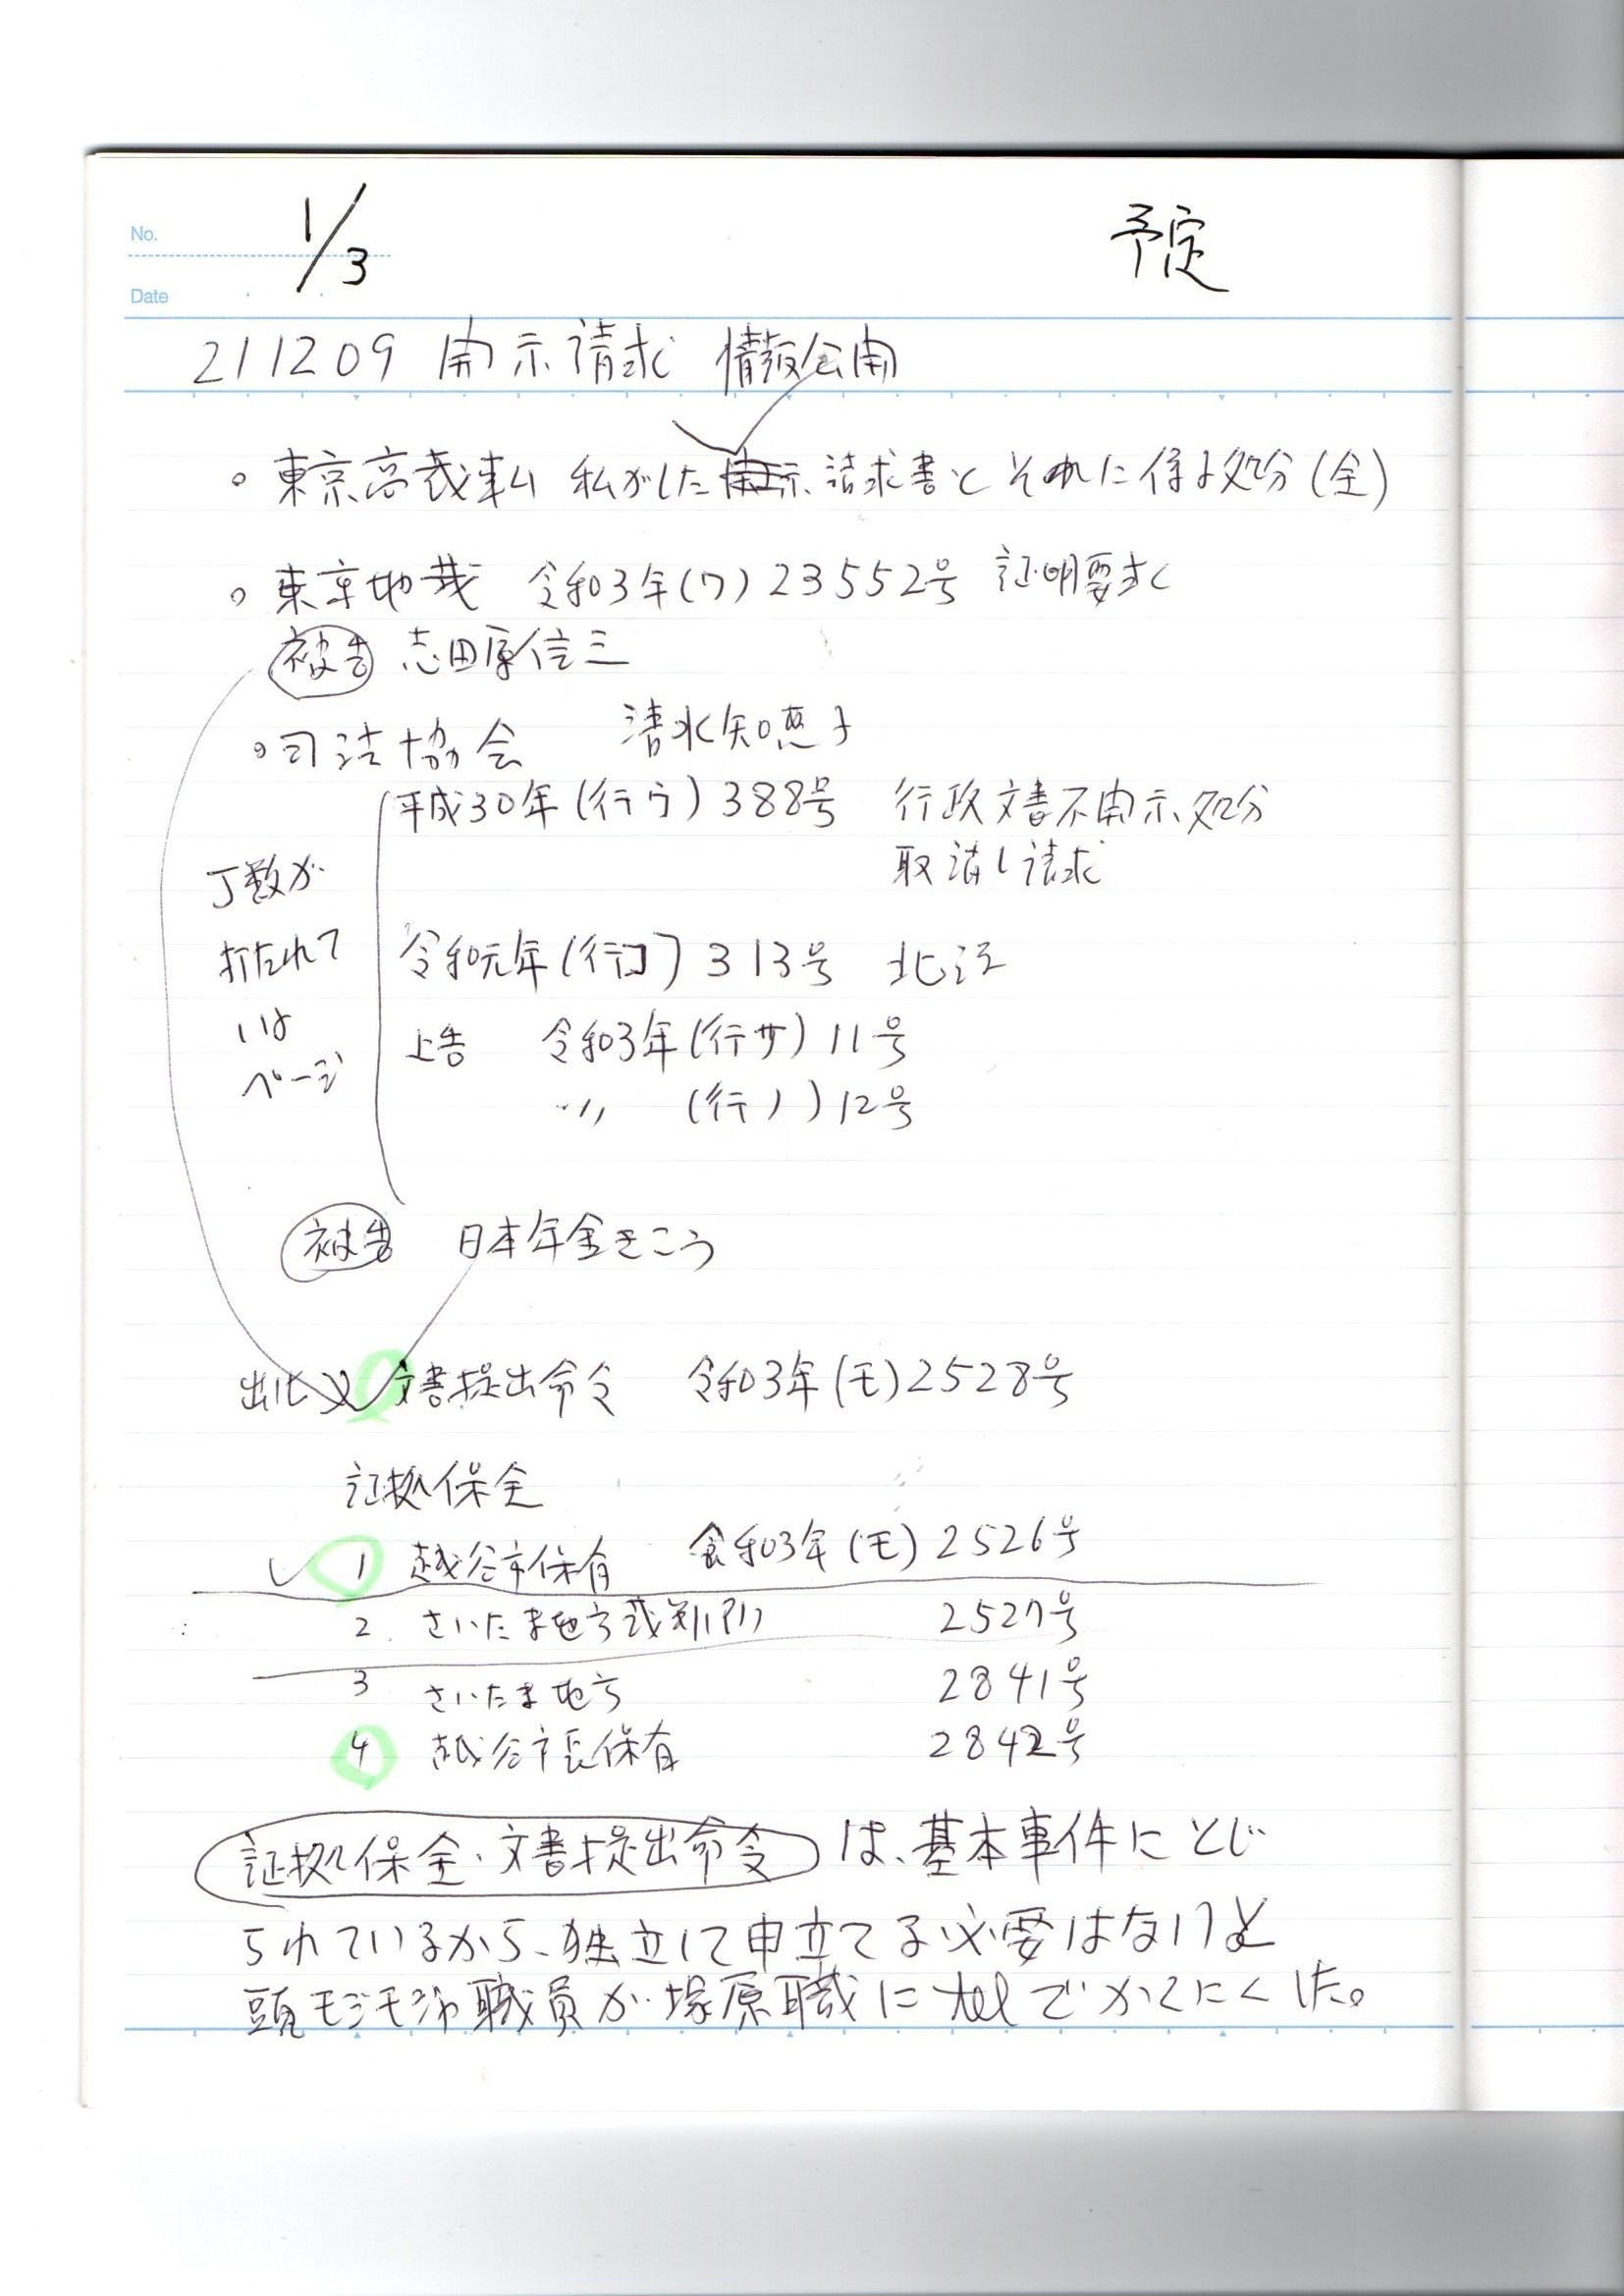 No.
1/3
予定
Date
211209 開示請求 情報公開
。東京高裁 私がした開示請求書とそれに係る処分(全)
。東京地裁 令和3年(ワ)23552号 証明要求
被告 志田原信三
清水知恵子
。司法協会
平成30年(行ウ)388号 行政文書不開示処分
取消し請求
丁数が
打たれて
いる
ページ
令和元年(行コ)313号 北澤
上告 令和3年(行サ)11号
〃 (行ノ)12号
被告 日本年金きこう
文書提出命令 令和3年(モ)2528号
証拠保全
1 越谷市保有 令和3年(モ)2526号
2. さいたま地方裁判所 2527号
3 さいたま地方 2841号
4 越谷市長保有 2842号
証拠保全、文書提出命令 は、基本事件にとじ
られているから、独立して申立てる必要はないと
頭モジモジ 職員が塚原職にtelでかくにくした。